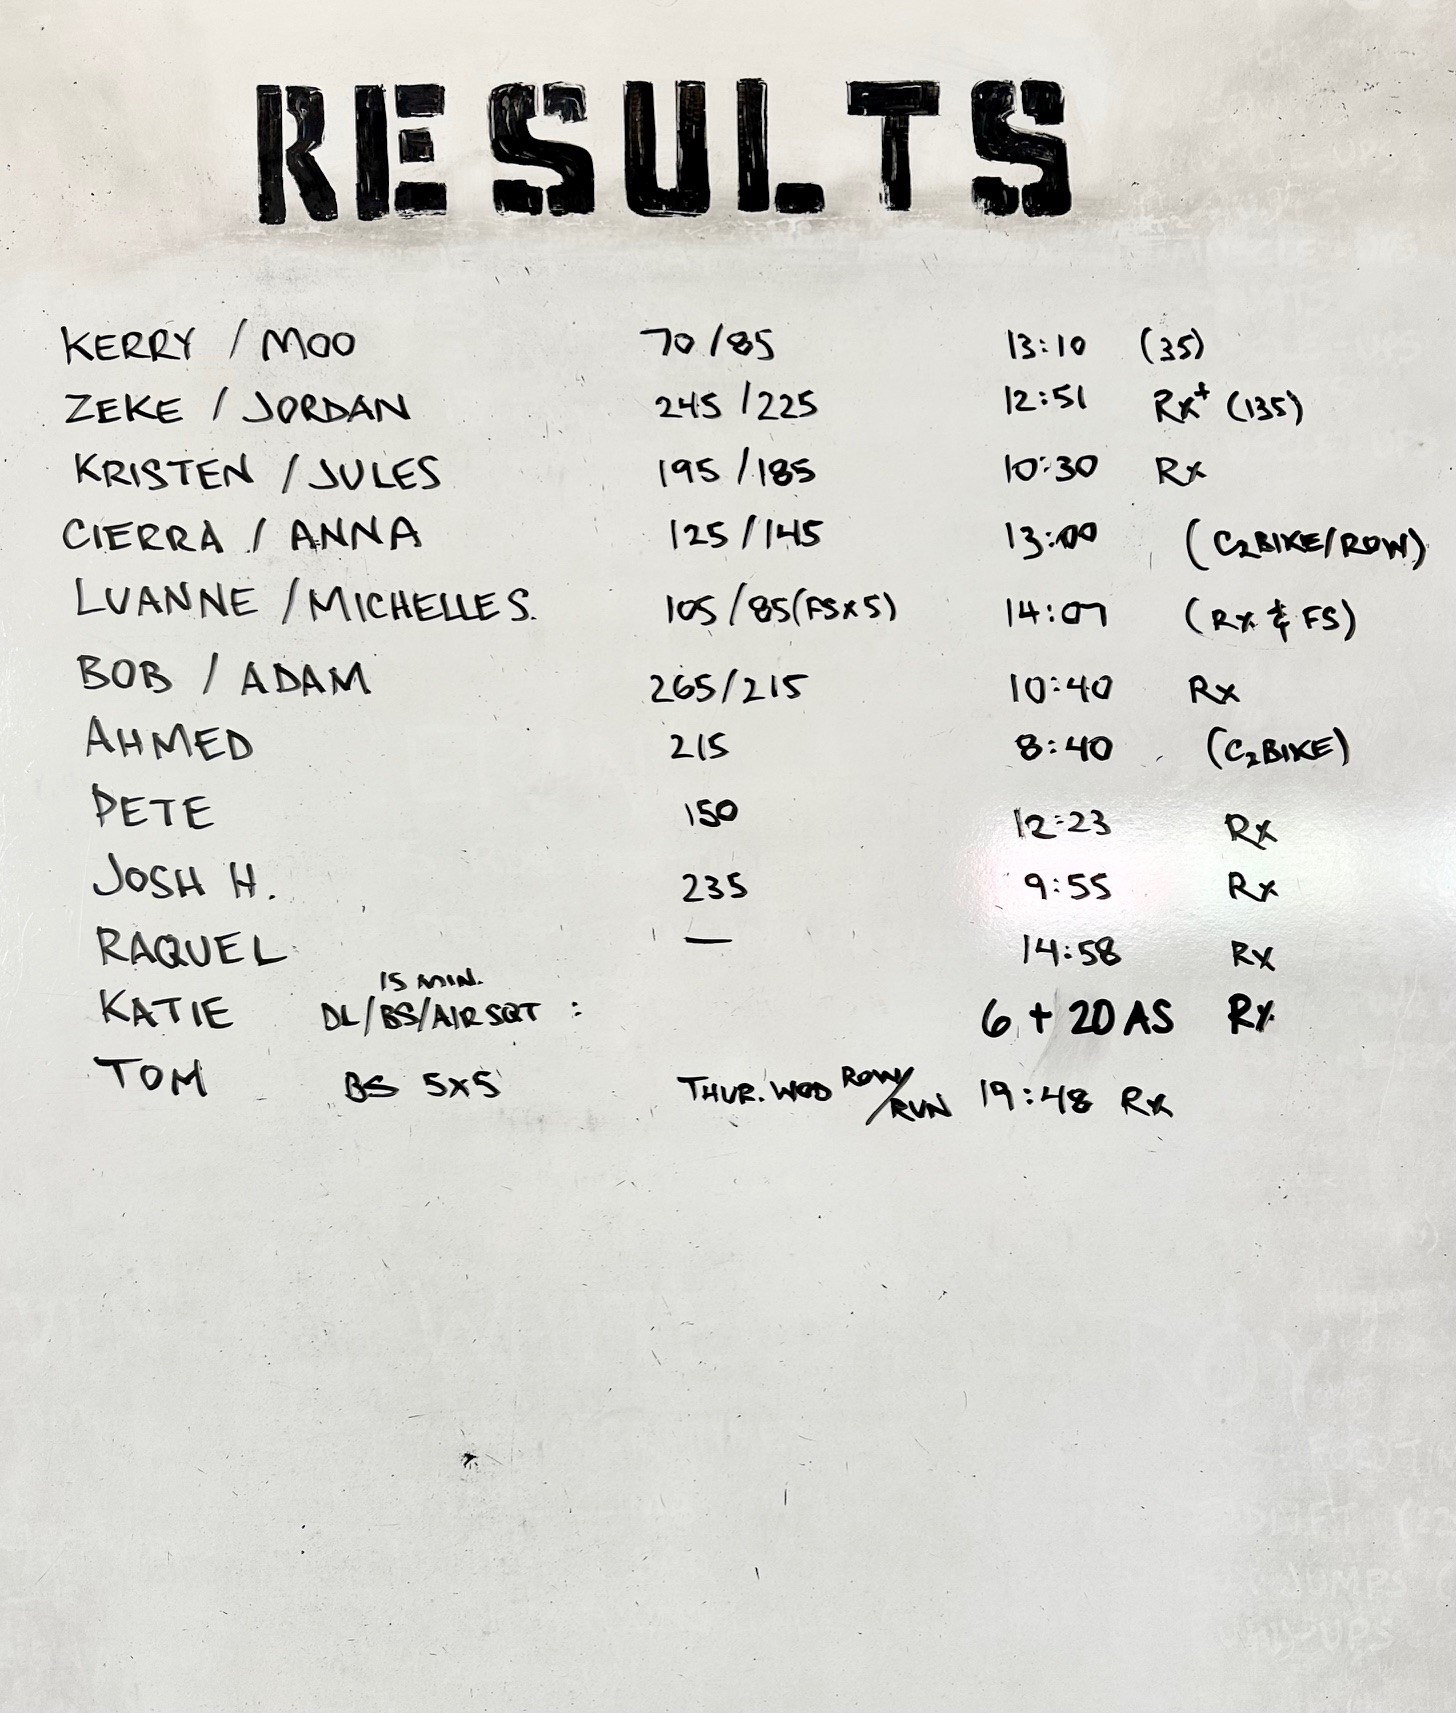 RESULTS
KERRY / MOO 70/85 13:10 (35)
ZEKE / JORDAN 245/225 12:51 Rx+ (135)
KRISTEN / JULES 195/185 10:30 Rx
CIERRA / ANNA 125/145 13:00 (C2BIKE/ROW)
LUANNE / MICHELLE S. 105/85(FSX5) 14:07 (Rx & FS)
BOB / ADAM 265/215 10:40 Rx
AHMED 215 8:40 (C2BIKE)
PETE 150 12:23 Rx
JOSH H. 235 9:55 Rx
RAQUEL — 14:58 Rx
15 MIN.
KATIE DL/BS/AIRSQT : 6 + 20 AS Rx
TOM BS 5x5 THUR. WOD ROW/RUN 19:48 Rx